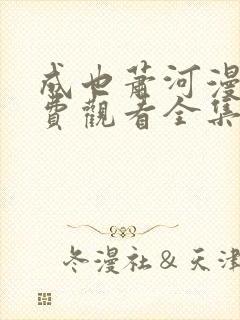 成也萧河漫
费觀看全集
冬漫社&天津